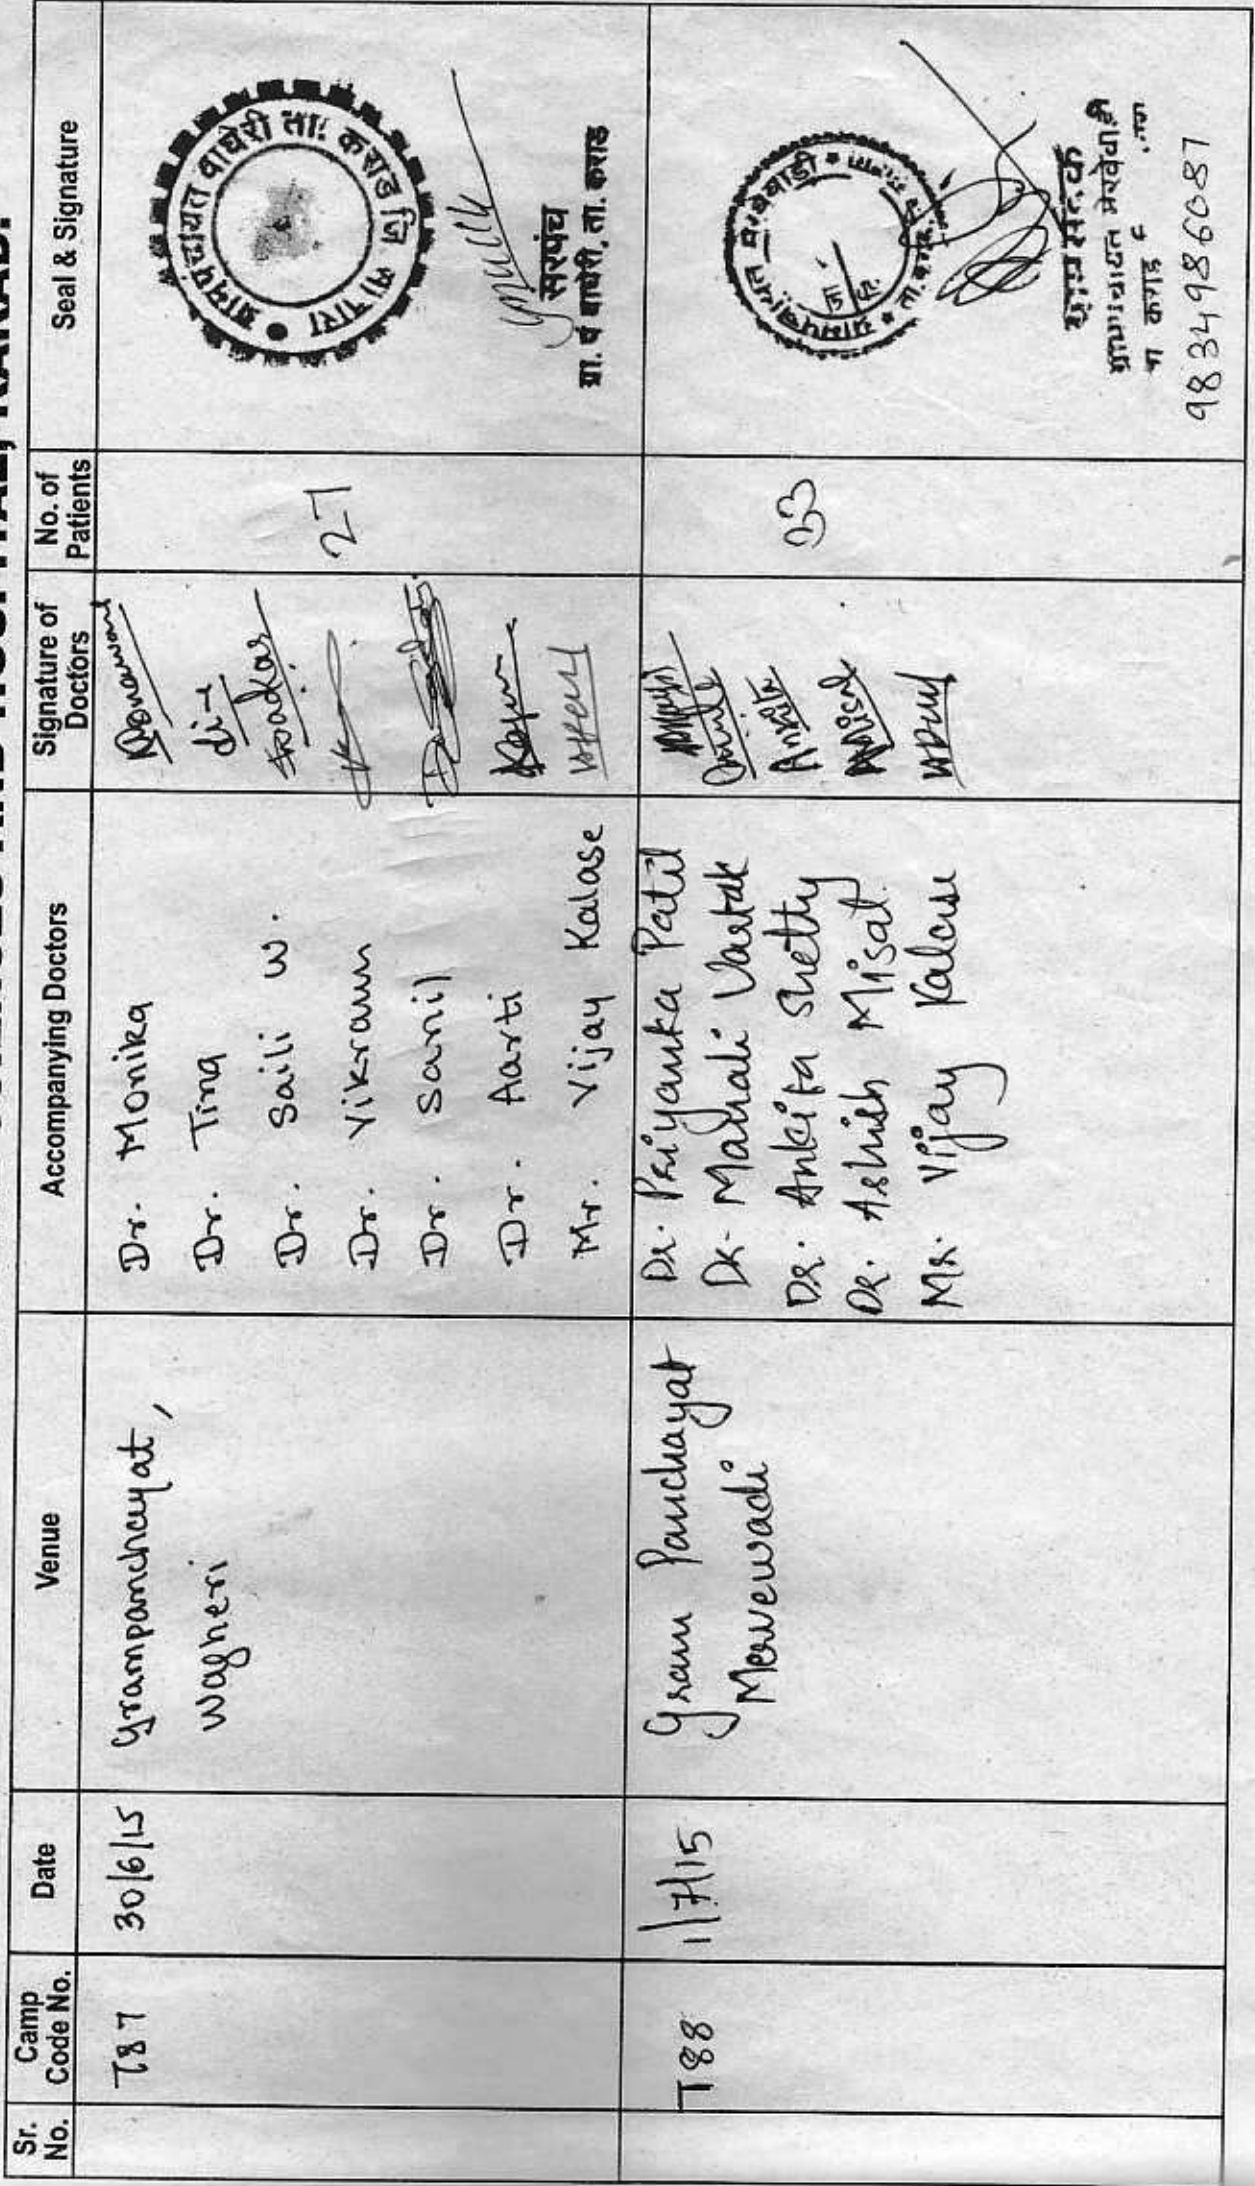 Sr. No.
Camp Code No.
Date
Venue
Accompanying Doctors
Signature of Doctors
No. of Patients
Seal & Signature
T87
30/6/15
Grampanchayat,
Wagheri
Dr. Monika
Dr. Tina
Dr. Saili W.
Dr. Vikram
Dr. Sanil
Dr. Aarti
Mr. Vijay Kalase
27
ग्रामपंचायत वाघेरी ता. कराड जि सातारा
सरपंच
ग्रा. पं वाघेरी, ता. कराड
T88
1/7/15
Gram Panchayat
Mervewadi
Dr. Priyanka Patil
Dr. Mahali Vartak
Dr. Ankita Shetty
Dr. Ashish Misal
Mr. Vijay Kalase
Ankita
Misal
33
9834986087